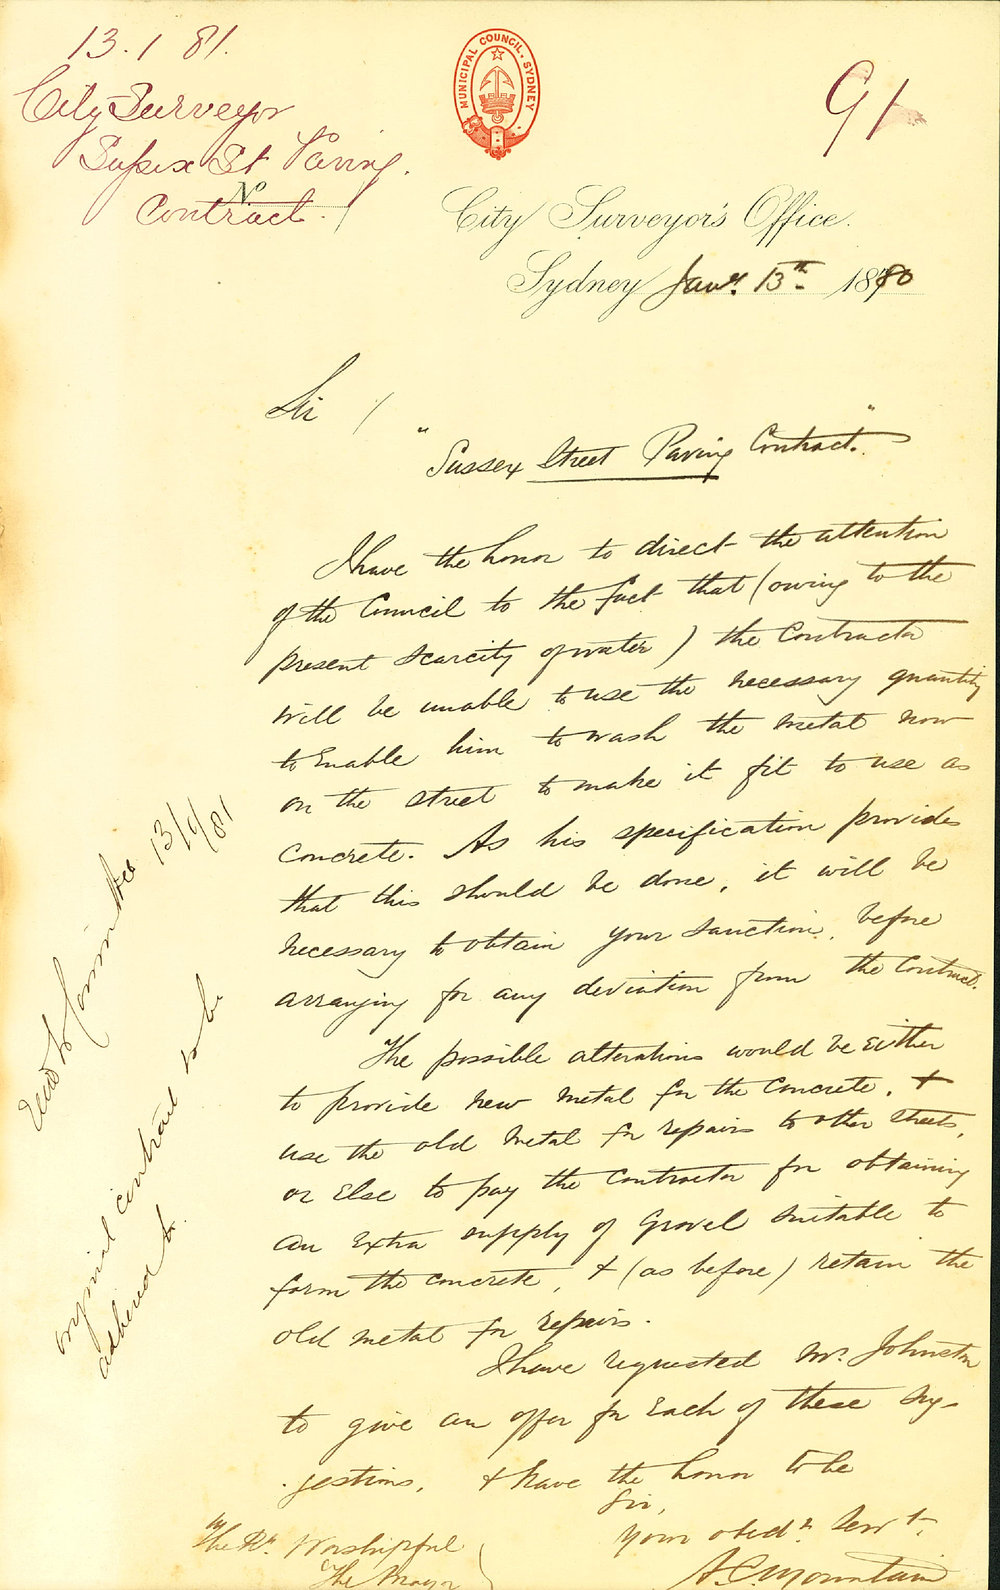 13.1 81.
City Surveyor
Sussex St Paving
Contract.
No
MUNICIPAL COUNCIL. SYDNEY
91
City Surveyor's Office.
Sydney Jany. 13th 1880
Sir /
"Sussex Street Paving Contract."
I have the honor to direct the attention
of the Council to the fact that (owing to the
present scarcity of water) the Contractor
will be unable to use the necessary quantity
to Enable him to wash the metal now
on the street to make it fit to use as
Concrete. As his specification provides
that this should be done, it will be
necessary to obtain your sanction, before
arranging for any deviation from the Contract.
The possible alterations would be Either
to provide new metal for the Concrete, +
use the old metal for repairs to other streets,
or Else to pay the Contractor for obtaining
an Extra supply of Gravel suitable to
form the concrete, + (as before) retain the
old metal for repairs.
I have requested Mr. Johnston
to give an offer for Each of these sug-
gestions, + have the honor to be
Sir,
Your obedt. Servt.
A.C. Mountain
The Rt. Worshipful
The Mayor
Committee 13/1/81
original contract to be
adhered to.